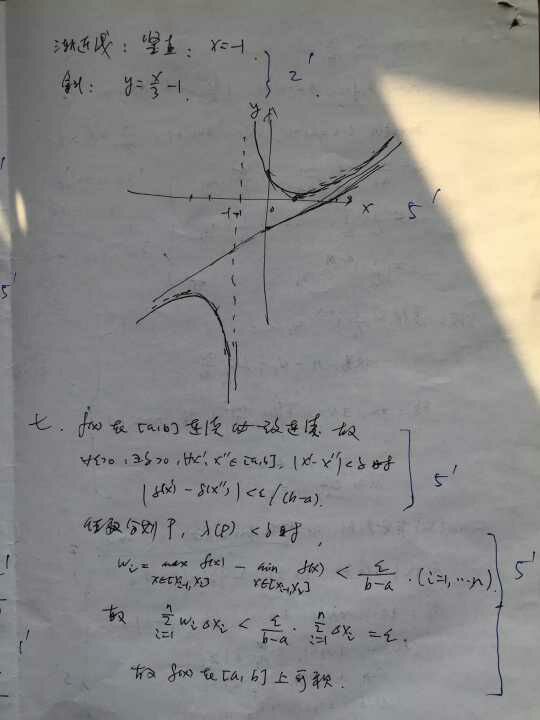 渐近线: 竖直: x=-1.
斜: y=x/3-1.
} 2'
y
-1 0 x
5'
七. f(x)在[a,b]连续必一致连续 故
∀ε>0, ∃δ>0, ∀x', x''∈[a,b], |x'-x''|<δ时
|f(x')-f(x'')|<ε/(b-a).
5'
任取分划P, λ(P)<δ时,
wi = max f(x) - min f(x) < ε/(b-a). (i=1,…n)
x∈[xi-1,xi] x∈[xi-1,xi]
5'
故 Σ(i=1→n) wiΔxi < ε/(b-a) · Σ(i=1→n) Δxi = ε.
故 f(x)在[a,b]上可积.
5'
1'